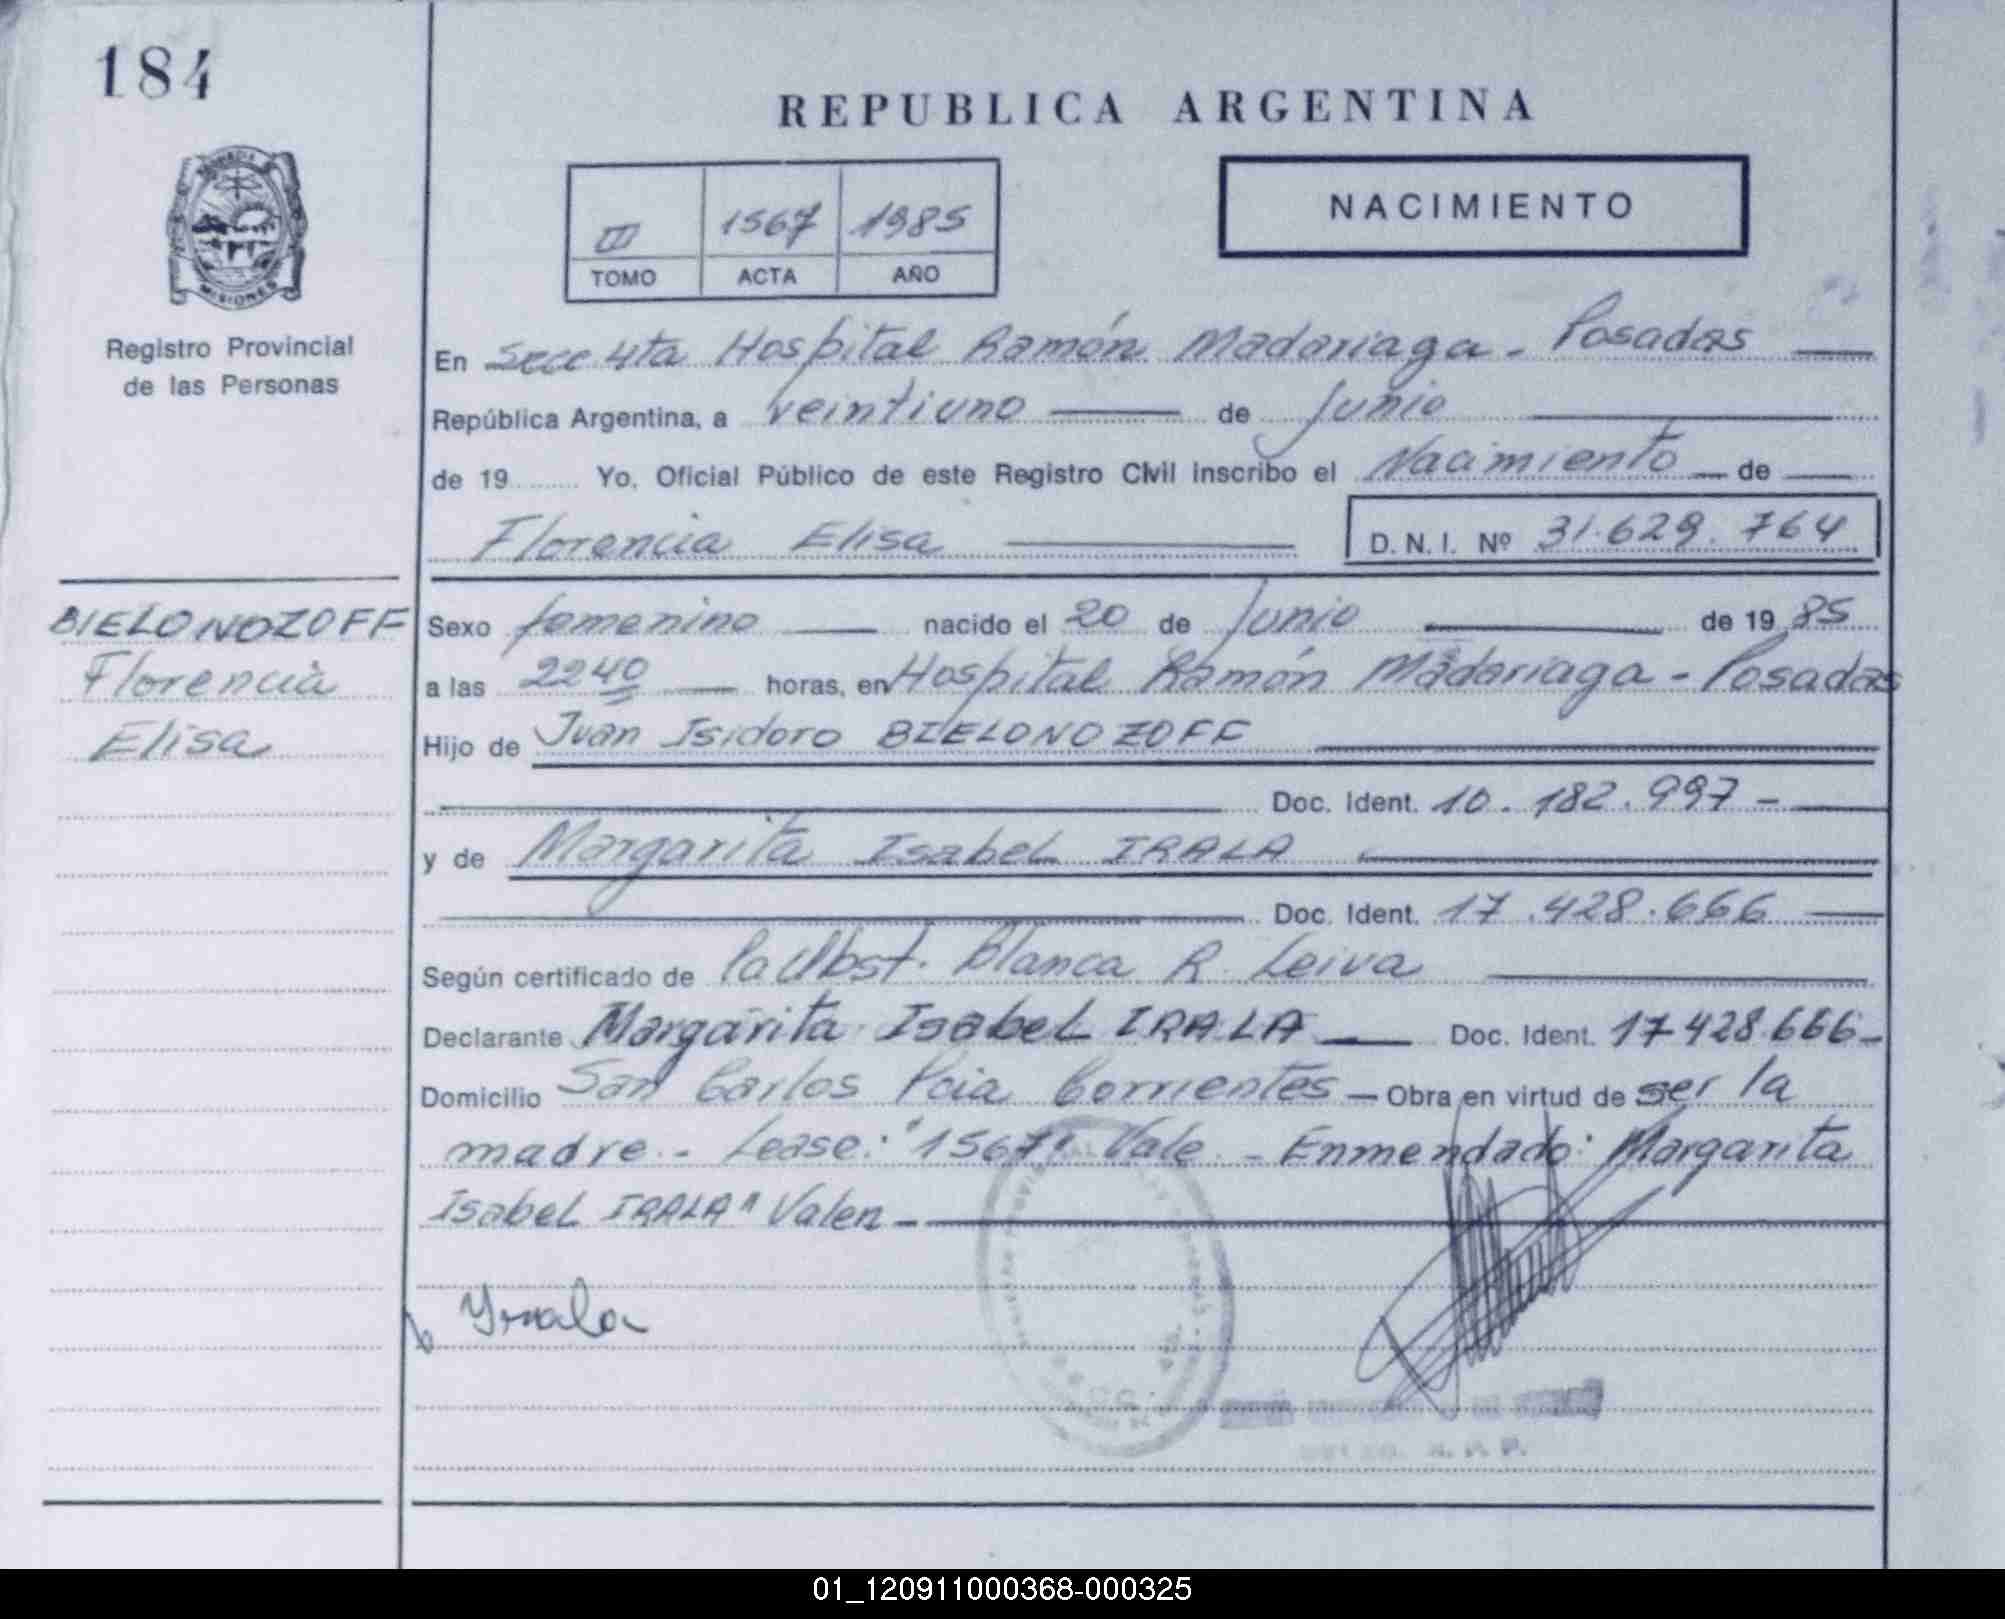 184
REPUBLICA ARGENTINA
NACIMIENTO
III 1567 1985
TOMO ACTA AÑO
MISIONES
Registro Provincial
de las Personas
En Secc 4ta Hospital Ramón Madariaga - Posadas
República Argentina, a veintiuno de Junio
de 19 Yo, Oficial Público de este Registro Civil inscribo el Nacimiento de
Florencia Elisa D. N. I. Nº 31.629.764
BIELONOZOFF
Florencia
Elisa
Sexo femenino nacido el 20 de Junio de 19 85
a las 2240 horas, en Hospital Ramón Madariaga - Posadas
Hijo de Juan Isidoro BIELONOZOFF
Doc. Ident. 10.182.997 -
y de Margarita Isabel IRALA
Doc. Ident. 17.428.666
Según certificado de Blanca R. Leiva
Declarante Margarita Isabel IRALA Doc. Ident. 17428.666-
Domicilio San Carlos Pcia Corrientes - Obra en virtud de ser la
madre - Lease: "1567" Vale - Enmendado: Margarita
Isabel IRALA" Valen -
Yrala
01_120911000368-000325